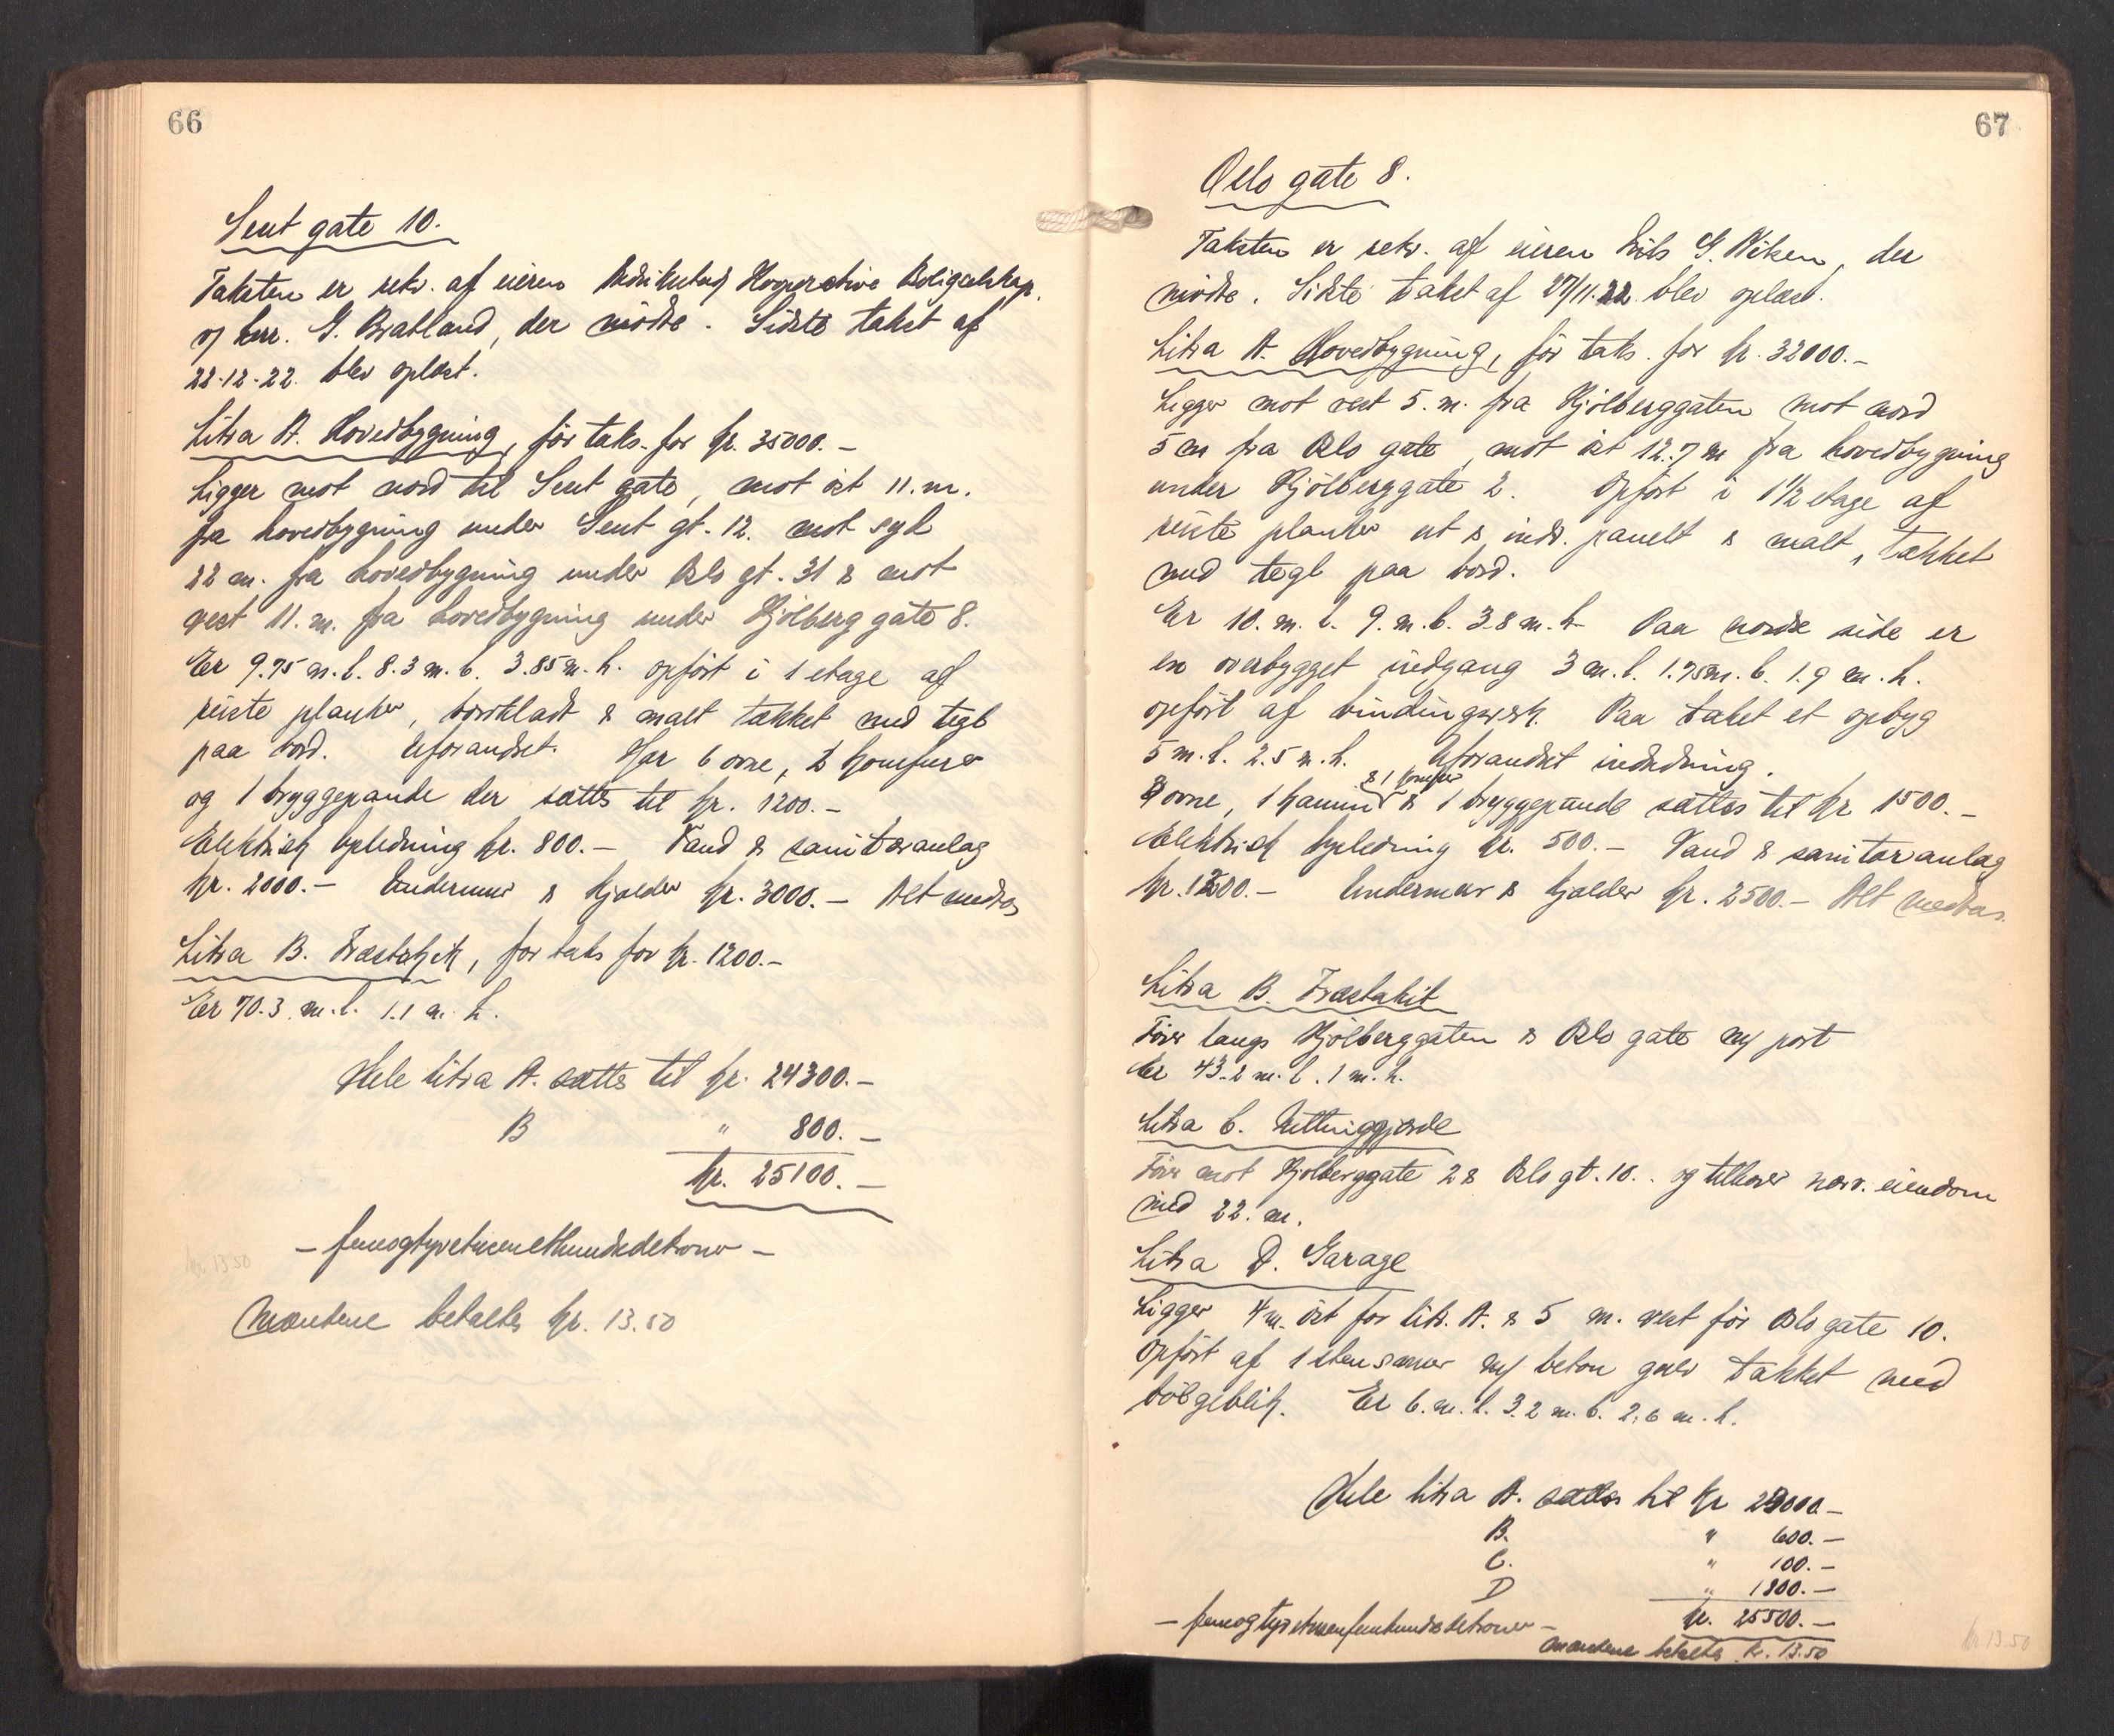 66
Sent gate 10.
Taksten er rekv. af eieren Fredrikstad Kooperative Boligselskap
v/ herr. G. Bratland, der mødte. Sidste takst af
22-12-22. blev oplæst.
Litra A. Hovedbygning, før taks. for kr. 35000.-
Ligger mot nord til Sent gate, mot øst 11. m.
fra hovedbygning under Sent gt. 12. mot syd
22 m. fra hovedbygning under Oslo gt. 31 & mot
vest 11. m. fra hovedbygning under Kjølberggate 8.
Er 9.75 m. l. 8.3 m. b. 3.85 m. h. opført i 1 etage af
reiste planker, bordklædt & malt tækket med tegl
paa bord. Uforandret. Har 6 ovne, 2 komfurer
og 1 bryggepande der sættes til kr. 1200.-
Elektrisk opledning kr. 800.- Vand & sanitæranlæg
kr. 2000.- Undermur & kjælder kr. 3000.- Alt medtas
Litra B. Træstakit, før taks for kr. 1200.-
Er 70.3 m. l. 1.1 m. h.
Hele litra A. sættes til kr. 24300.-
B " 800.-
kr. 25100.-
- femogtyvetusenethundredekroner -
kr. 13.50
Mændene betaltes kr. 13.50
67
Oslo gate 8.
Taksten er rekv. af eieren Nils G. Viken, der
mødte. Sidste takst af 27/11.22. blev oplæst.
Litra A. Hovedbygning, før taks. for kr. 32000.-
Ligger mot vest 5. m. fra Kjølberggaten mot nord
5 m fra Oslo gate, mot øst 12.7 m fra hovedbygning
under Kjølberggate 2. Opført i 1 1/2 etage af
reiste planker ut & indv. panelt & malt, tækket
med tegl paa bord.
Er 10. m. l. 9. m. b. 3.8 m. h. Paa nordre side er
en overbygget indgang 3 m. l. 1.75 m. b. 1.9 m. h.
opført af bindingsverk. Paa taket et opbyg
5 m. l. 2.5 m. h. Uforandret indredning.
& 1 komfur
8 ovne, 1 kamin & 1 bryggepande sættes til kr 1500.-
Elektrisk opledning kr. 500.- Vand & sanitæranlæg
kr. 1200.- Undermur & kjælder kr. 2500.- Alt medtas.
Litra B. Træstakit
Fører langs Kjølberggaten & Oslo gate m/ port
Er 43.2 m. l. 1 m. h.
Litra C. Nettinggjærde
Fører mot Kjølberggate 2 & Oslo gt. 10. og tilhører nærv. eiendom
med 22. m.
Litra D. Garage
Ligger 4 m. øst for litr. A. & 5 m. vest for Oslo gate 10.
Opført af 1 stensmur m/ beton gulv tækket med
bølgeblik. Er 6. m. l. 3.2 m. b. 2.6 m. h.
Hele litra A. sættes til kr 23000.-
B. " 600.-
C. " 100.-
D " 1800.-
- femogtyvetusenfemhundredekroner - kr. 25500.-
Mændene betaltes kr. 13.50
kr 13.50